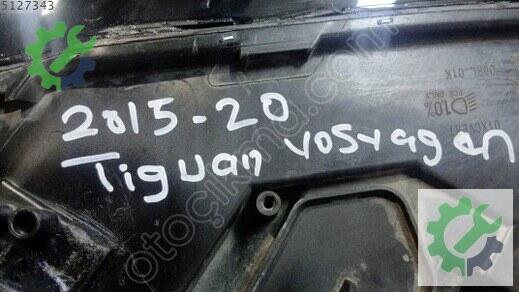 5127343
2015-20
Tiguan vosvagen
10%
otoçıkma.com